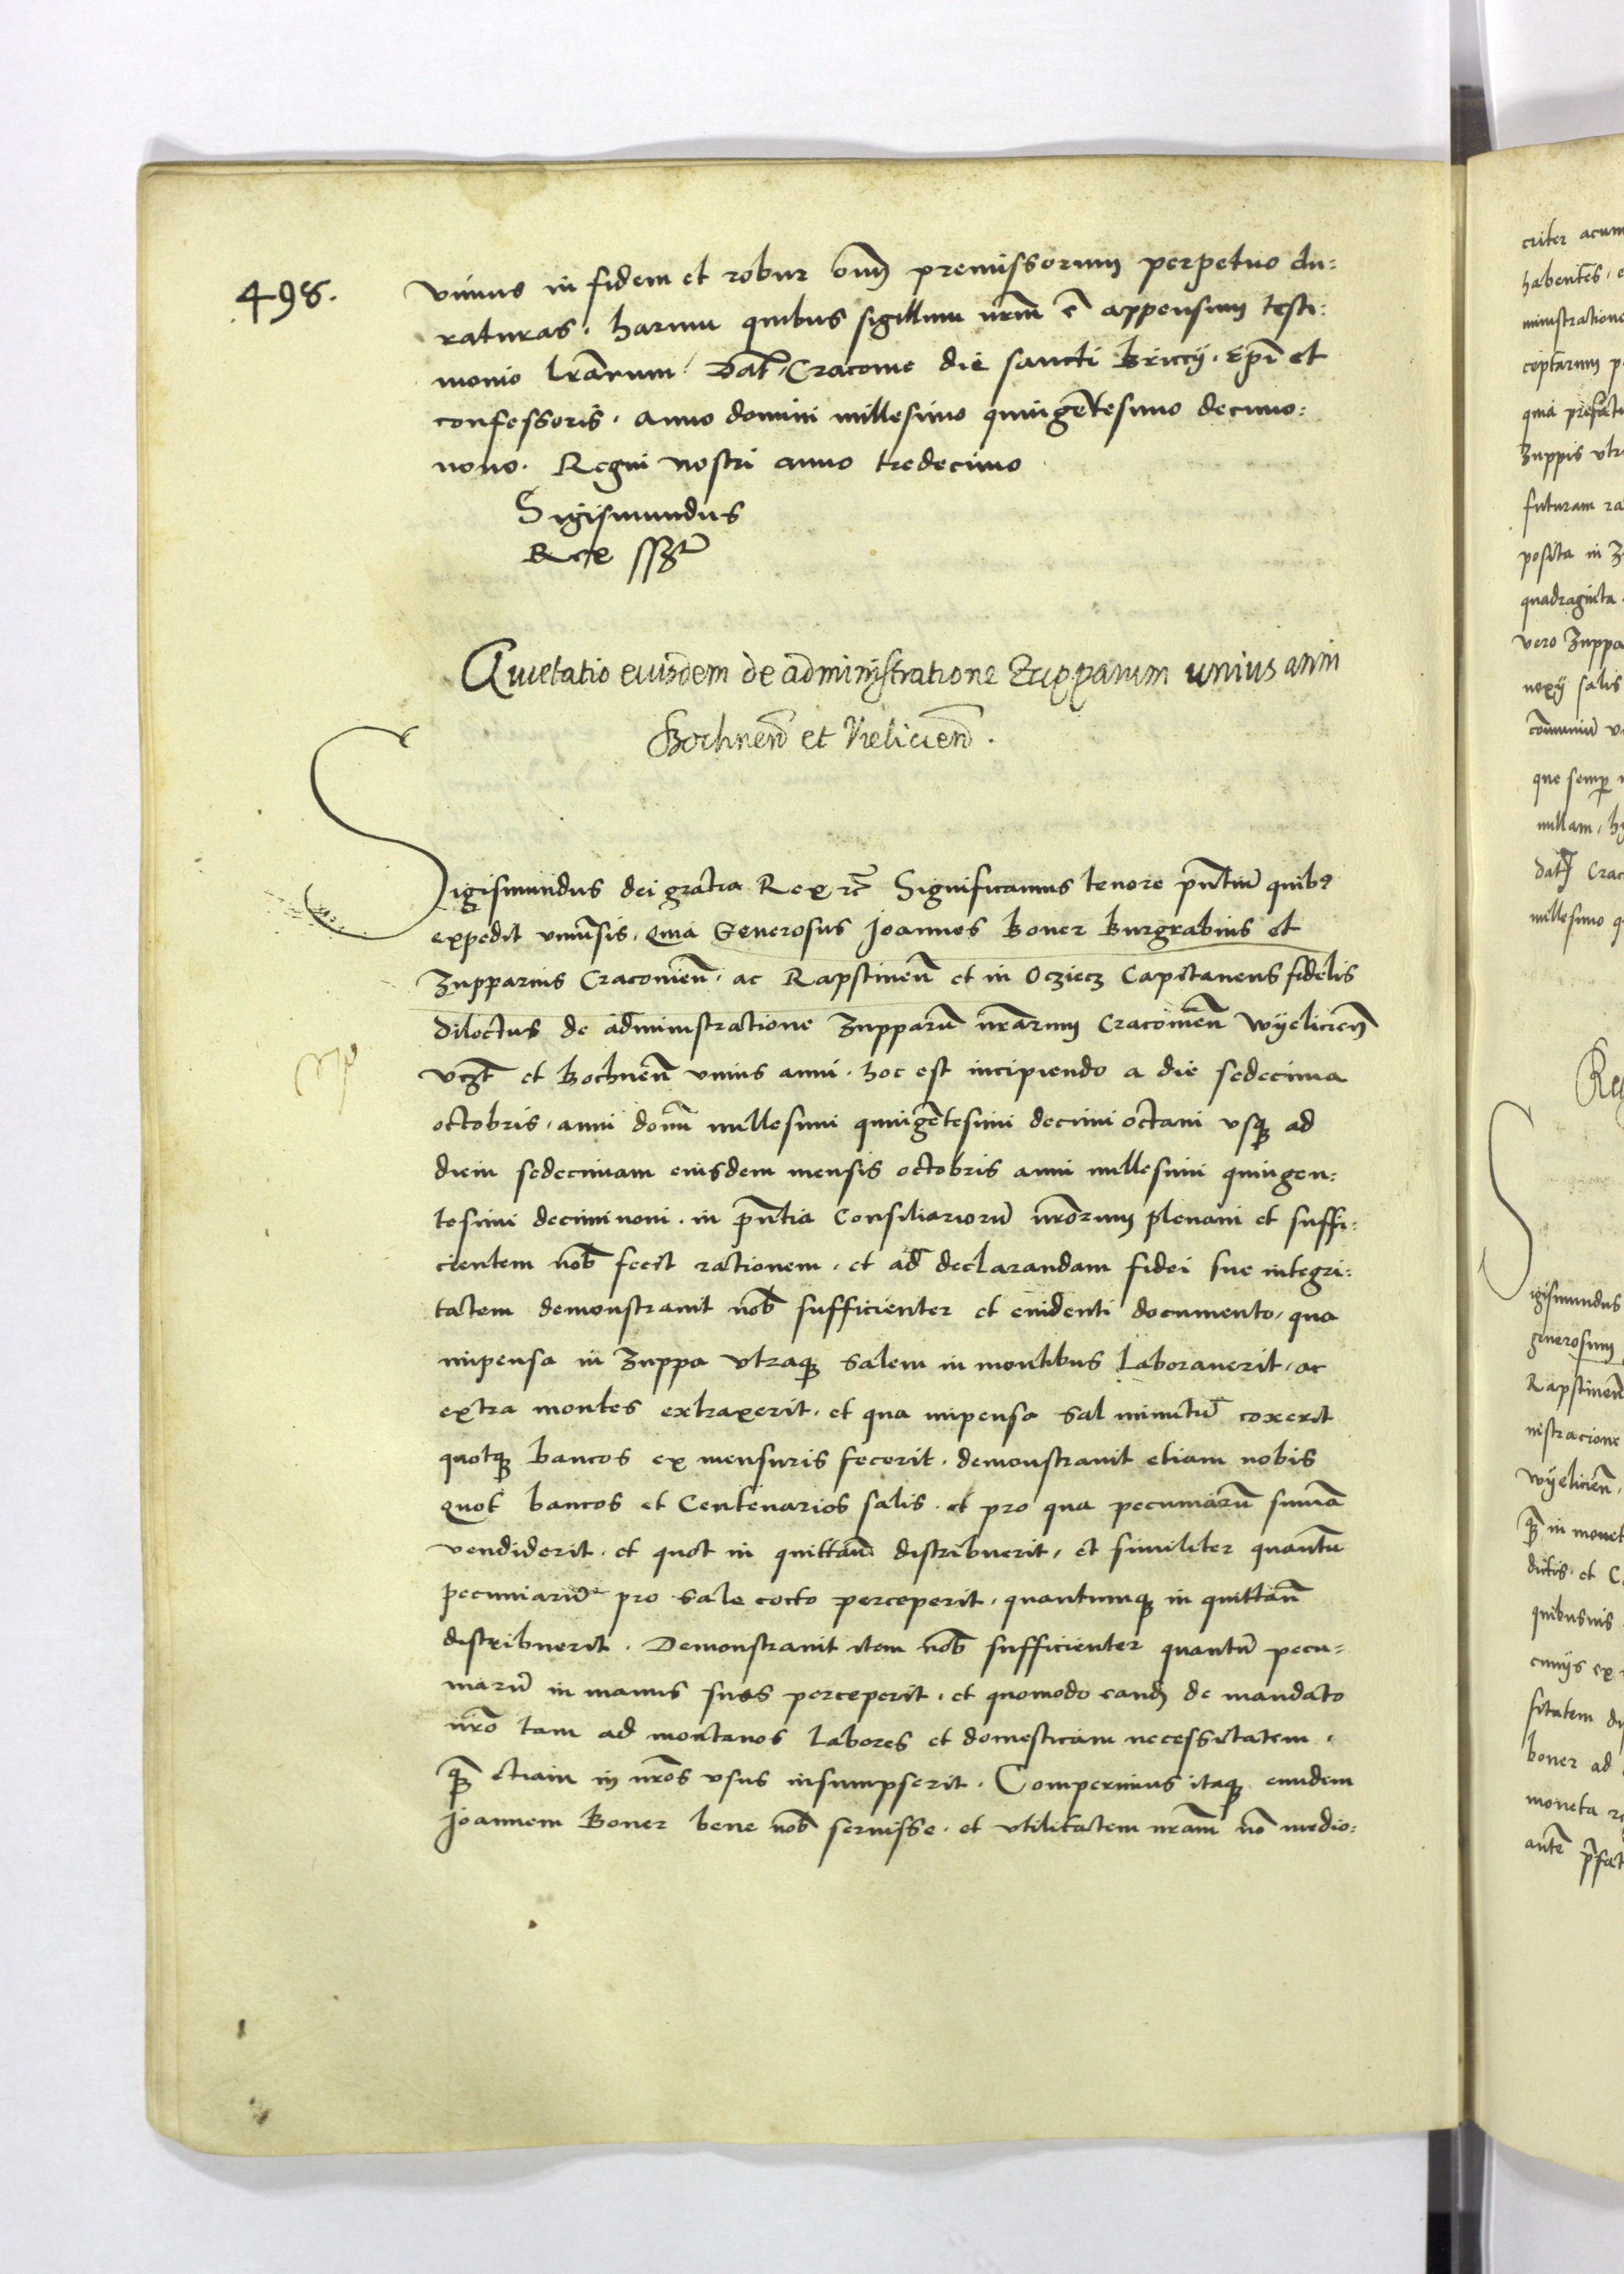 498.
vimus in fidem et robur oīm premissorum perpetuo du:
raturas. harum quibus sigillum nrm̄ ē appensum testi:
monio lrārum. Dat̄. Cracovie die sancti Briccij. Epī et
confessoris. anno domini millesimo quingētesimo decimo:
nono. Regni nostri anno tredecimo
Sigismundus
Rex sszt̄
Quietatio eiusdem de administratione Zupparum unius anni
Bochneñ et Vielicieñ.
Sigismundus dei gratia Rex rc̄ Significamus tenore pn̄tiū quibꝰ
expedit univ̄sis. quia Generosus Joannes Boner Burgrabius et
Zupparius Cracovieñ. ac Rapstineñ et in Ocziecz Capitaneus fidelis
dilectus de administratione Zupparū nrārum Cracovieñ Wyelicieñ
vczt̄ et Bochneñ unius anni. hoc est incipiendo a die sedecima
octobris. anni domī millesimi quingētesimi decimi octavi usqꝫ ad
diem sedecimam eiusdem mensis octobris anni millesimi quingen:
tesimi decimi noni. in pn̄tia Consiliariorū nrōrum plenam et suffi:
cientem nob̄ fecit rationem. et ad declarandam fidei sue integri:
tatem demonstravit nob̄ sufficienter et evidenti documento, qua
impensa in Zuppa utraqꝫ salem in montibus Laboraverit, ac
extra montes extraxerit. et qua impensa sal minutū coxerit
quotqꝫ bancos ex mensuris fecerit. demonstravit etiam nobis
quot bancos et Centenarios salis. et pro qua pecuniarū summā
vendiderit. et quot in quittan̄ distribuerit, et similiter quantū
pecuniarū pro sale cocto perceperit. quantumqꝫ in quittan̄
distribuerit. Demonstravit item nob̄ sufficienter quantū pecu=
niarū in manus suas perceperit. et quomodo eand̄ de mandato
nrō tam ad montanos Labores et domesticam necessitatem.
qꝫ̄ etiam in nrōs usus insumpserit. Comperimus itaqꝫ eundem
Joannem Boner bene nob̄ servisse. et utilitatem nrām nō medio:
criter acum
habentes,
ministratione
ceptarum p
quia prefatu
Zuppis utr
futuram ra
posita in Z
quadraginta
vero Zuppa
noxij salis
cōmuniū v
que semp̄
nullam, h
Dat̄ Crac
millesimo q
igismundus
generosum
Rapstineñ
nistracione
Wyelicieñ
qꝫ̄ in monet
dictis. et C
quibusvis
cunijs ex
sitatem do
boner ad
moneta re
autē p̄fat